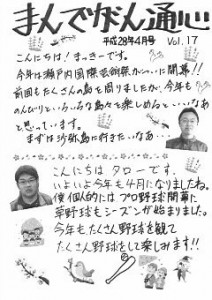 まんでがん通心
平成28年4月号 Vol.17
こんにちは！まっきーです。
今年は瀬戸内国際芸術祭がついに開幕!!
前回もたくさんの島を周りましたが、今年も
のんびりといろいろな島々を楽しめるといいなあ
と思っています。
まずは沙弥島に行きたいなあ…
こんにちは タローです。
いよいよ今年も4月になりましたね。
僕個人的にはプロ野球開幕に
草野球もシーズンが始まりました。
今年もたくさん野球を観て
たくさん野球をして楽しみます!!